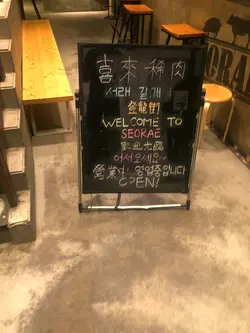 喜來稀肉
서래 갈매
登龍街
WELCOME TO
SEORAE
歡迎光臨
어서오세요~
營業中 영업중입니다
OPEN!